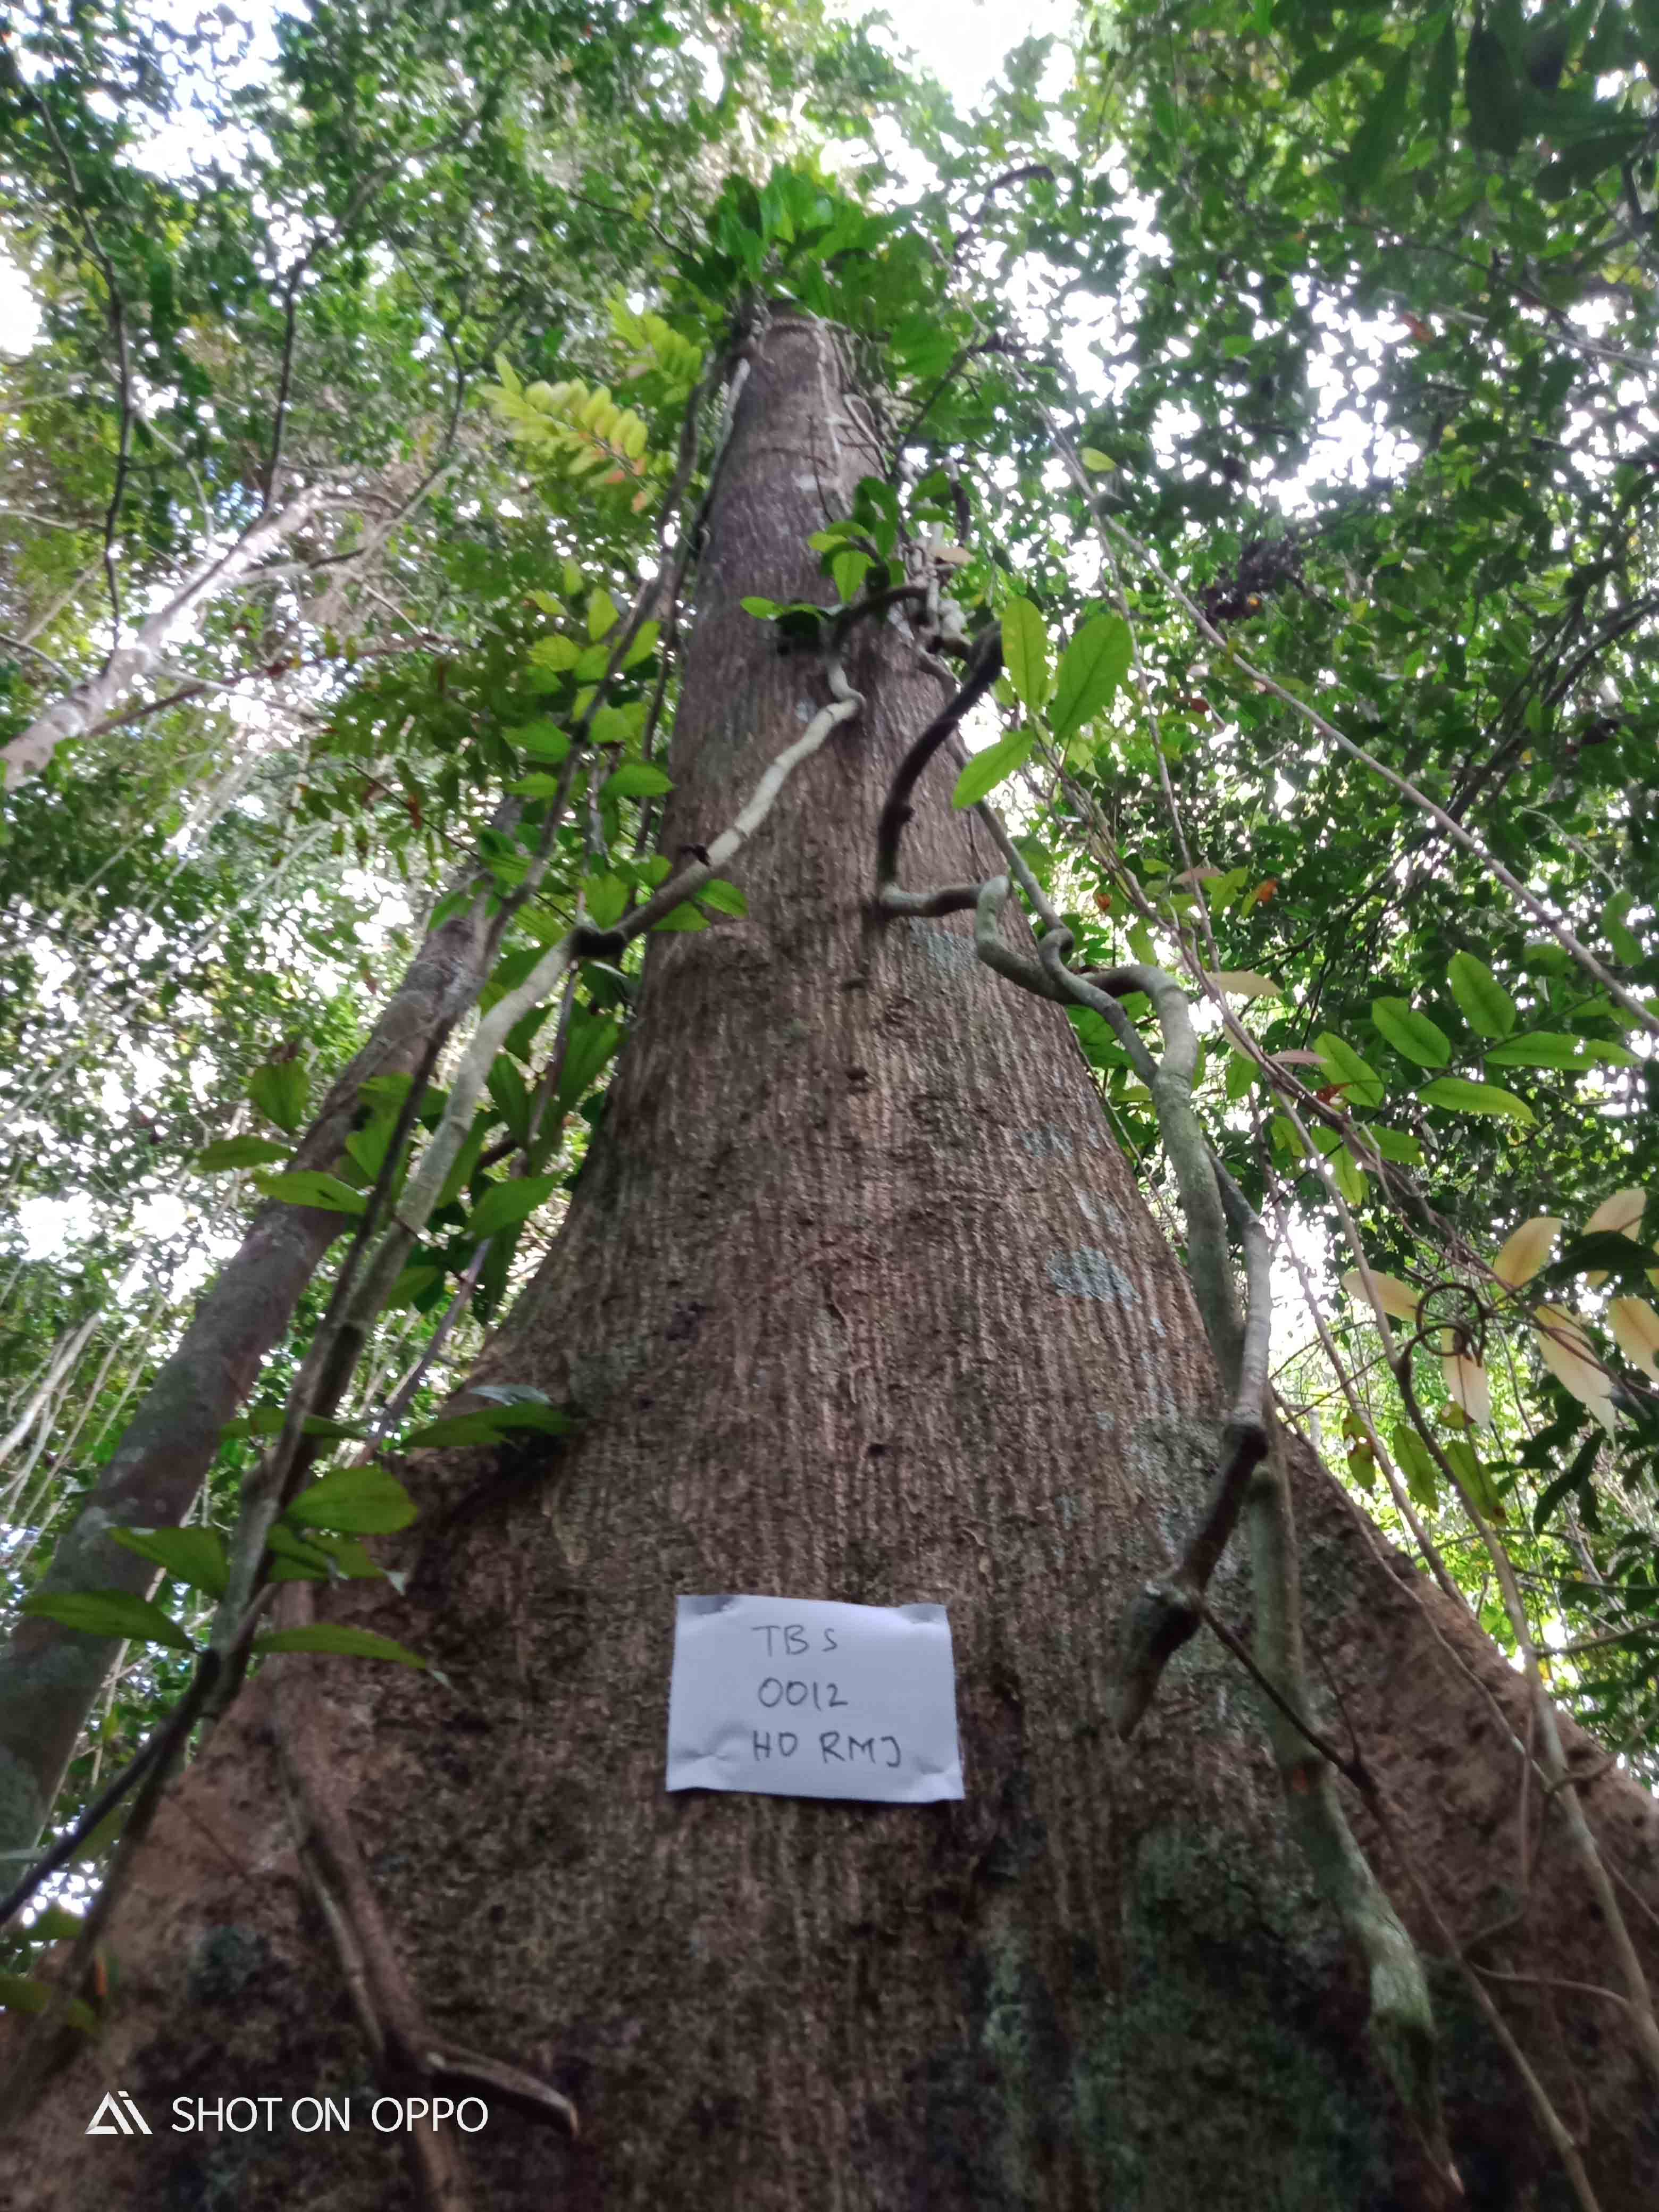 TBS
0012
HD RMJ
SHOT ON OPPO